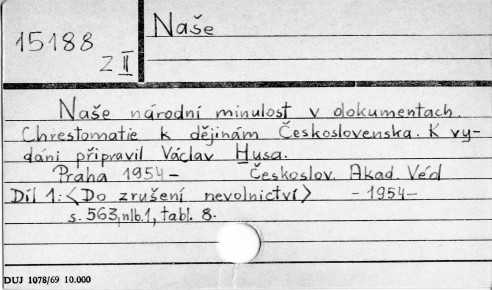 15188
Z II
Naše
Naše národní minulost v dokumentach.
Chrestomatie k dějinám Československa. K vy-
dáni připravil Václav Husa.
Praha 1954- Českoslov. Akad. Věd
Díl 1: <Do zrušení nevolnictví> -1954-
s. 563, nlb. 1, tabl. 8.
DUJ 1078/69 10.000